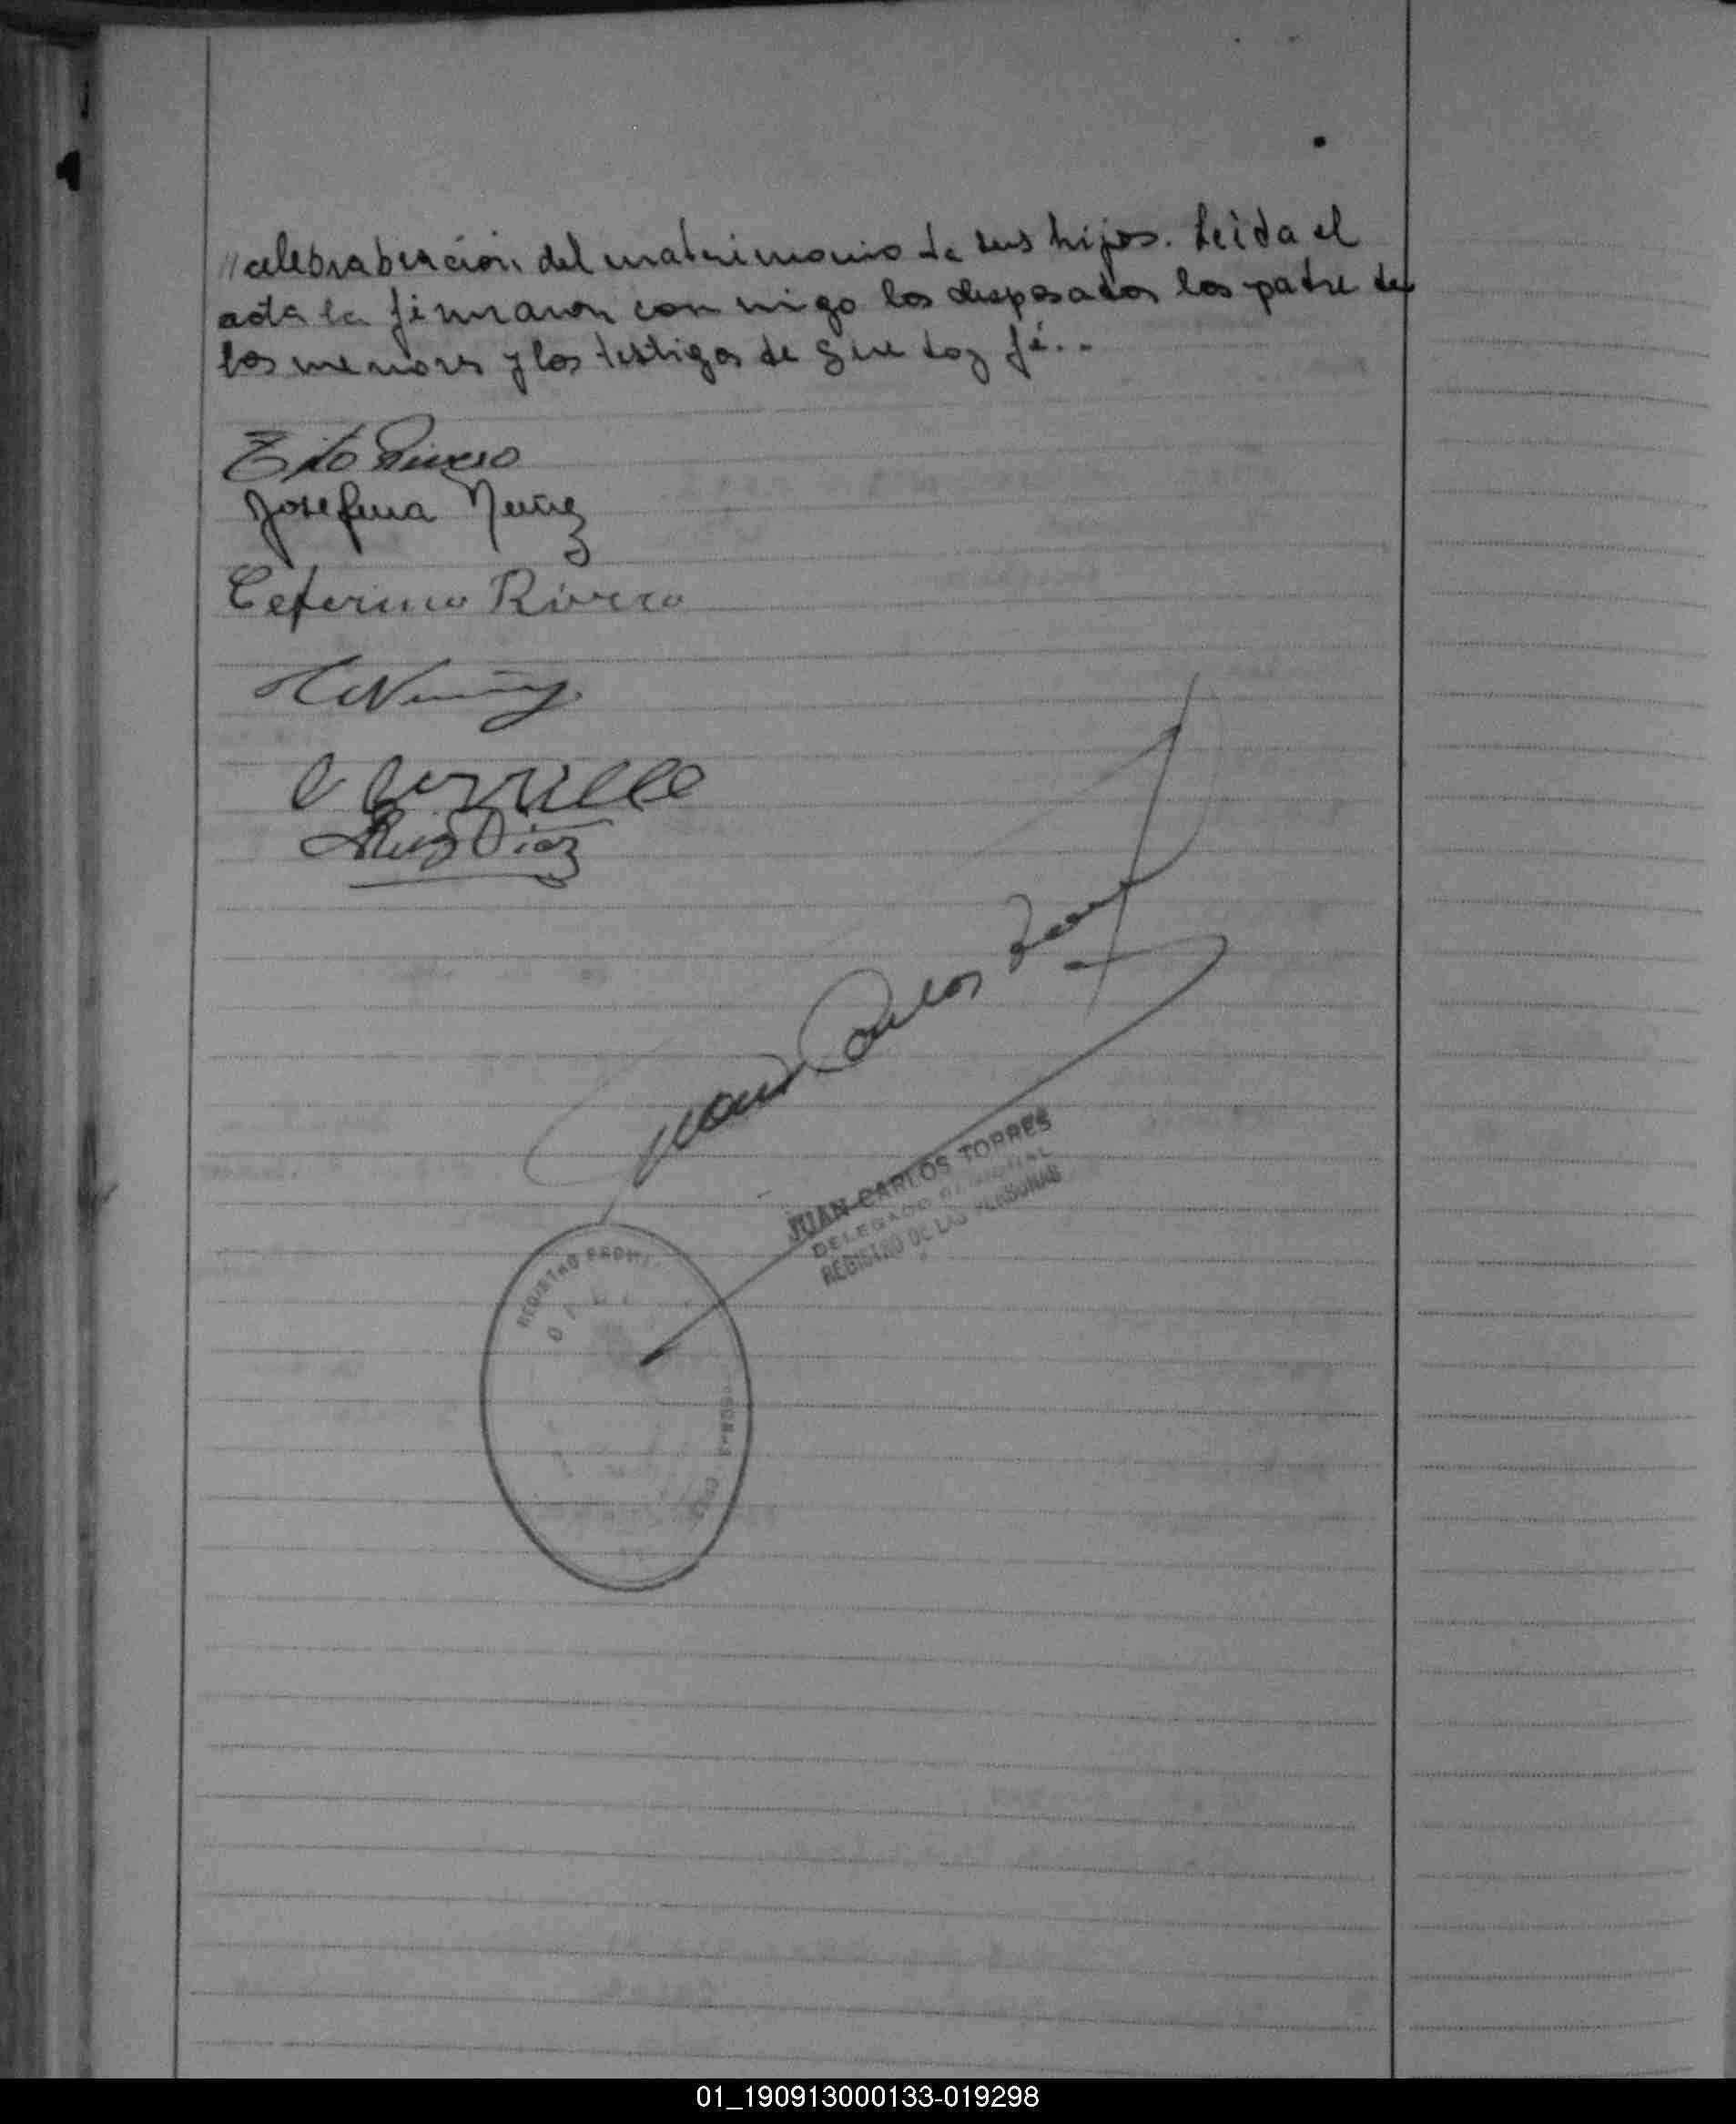 //celebraberación del matrimonio de sus hijos. Leida el
acta la firmaron con migo los desposados los padre de
los menores y los testigos de que doy fé..
Tito Rivero
Josefina Nuñez
Ceferino Rivero
Nuñez
Ruiz Diaz
Juan Carlos Torres
JUAN CARLOS TORRES
DELEGADO REGIONAL
REGISTRO DE LAS PERSONAS
REGISTRO
01_190913000133-019298